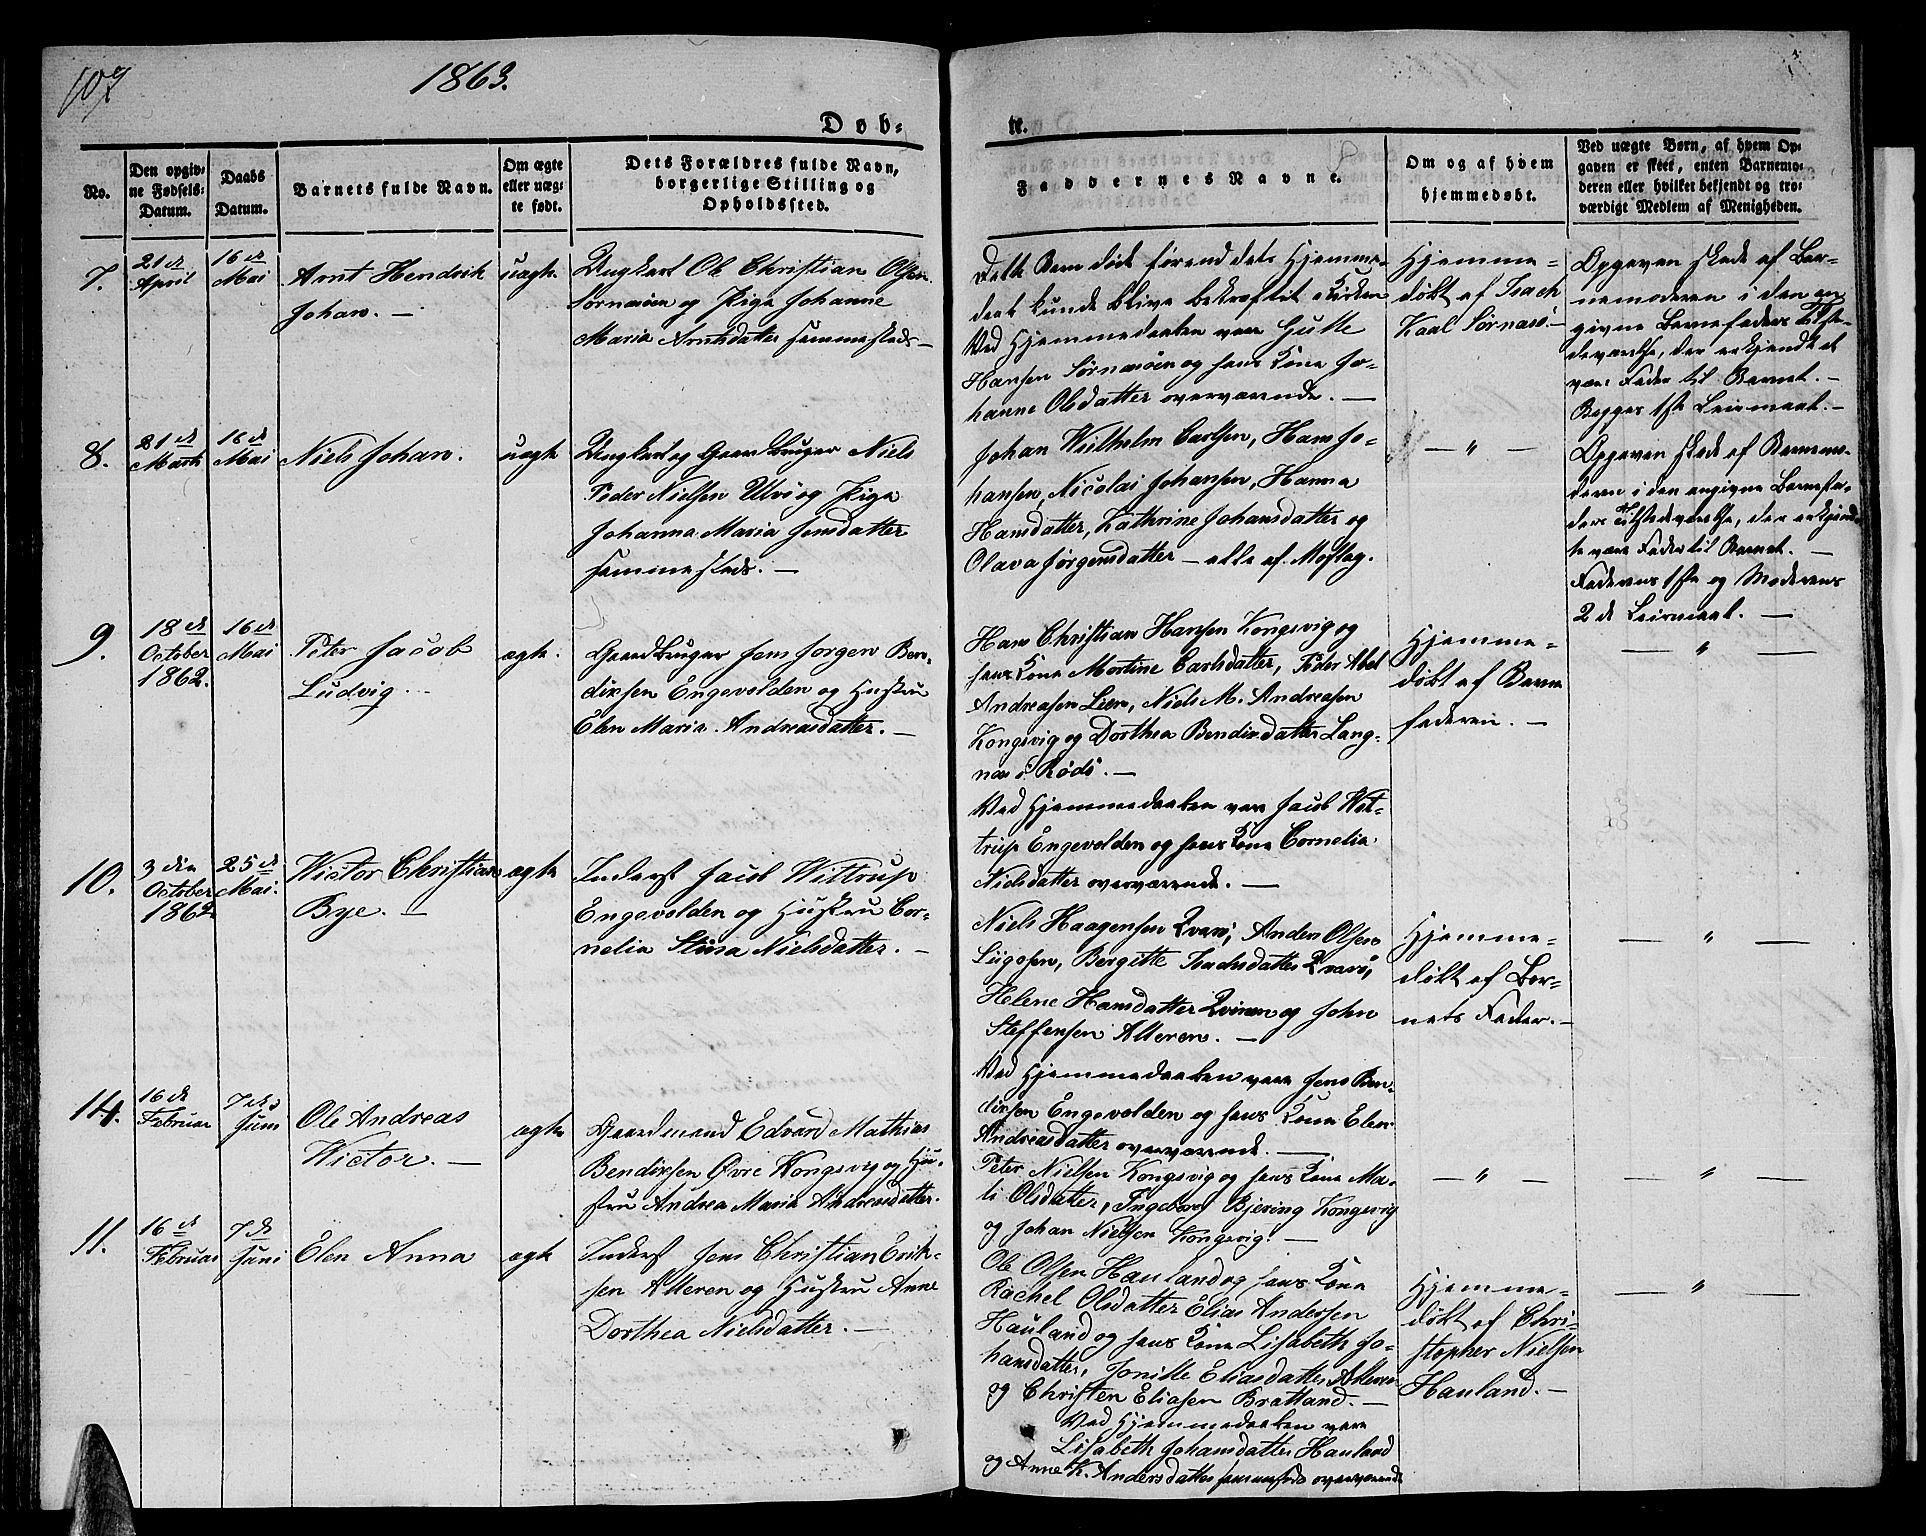 107
1863.
Døb-
te.
No.
Den opgiv-
ne Fødsels-
Datum.
Daabs
Datum.
Barnets fulde Navn.
Om ægte
eller uæg-
te født.
Dets Forældres fulde Navn,
borgerlige Stilling og
Opholdssted.
Faddernes Navne.
Om og af hvem
hjemmedøbt.
Ved uægte Børn, af hvem Op-
gaven er skeet, enten Barnemo-
deren eller hvilket bekjendt og tro-
værdigt Medlem af Menigheden.
7.
21de
April
16de
Mai
Arnt Hendrik
Johan. —
uægte
Ungkarl Ole Christian Olsen
Sørnæsøen og Pige Johanne
Maria Arntsdatter sammesteds —
Dette Barn døde førend dets Hjemme-
daab kunde blive bekræftet i Kirken
Ved Hjemmedaaben vare
Hansen Sørnæsøen og hans Kone Jo-
hanne Olsdatter overværende. —
Hjemme-
døbt af Isach
Karl Sørnæsø. —
Opgaven skede af Bar-
nemoderen i den an-
givne Barnefaders Tilste-
deværelse, der erkjendte at
være Fader til Barnet. —
Begges 1ste Leiermaal. —
8.
21de
Marts
16de
Mai
Niels Johan.
uægte
Ungkarl og Gaardbruger Niels
Peder Nielsen Ulvø og Pige
Johanna Maria Jensdatter
sammesteds. —
Johan Wilhelm Carlsen, Hans Jo-
hansen, Nicolai Johansen, Hanna
Hansdatter, Kathrine Johansdatter og
Olava Jørgensdatter — alle af Moflag.
— " —
Opgaven skede af Barnemo-
deren i den angivne Barnefa-
ders Tilstedeværelse, der erkjend-
te være Fader til Barnet. —
Faderens 1ste og Moderens
2det Leiermaal. —
9.
18de
October
1862.
16de
Mai
Peter Jacob
Ludvig. —
ægte.
Gaardbruger Jens Jørgen Ben-
diksen Engevolden og Hustru
Elen Maria Andreasdatter. —
Hans Christian Hansen Kongsvig og
hans Kone Mortine Carlsdatter, Peder Abel
Andreasen Lien, Niels M. Andreasen
Kongsvig og Dorthea Bendixdatter Lang-
næs i Rødø. —
Ved Hjemmedaaben vare Jacob Wit-
trup Engevolden og hans Kone Cornelia
Nielsdatter overværende. —
Hjemme-
døbt af Barne
faderen. —
— " —
10.
3die
October
1862
25de
Mai.
Victor Christian
Bye. —
ægte
Inderst Jacob Wittrup
Engevolden og Hustru Cor-
nelia Stina Nielsdatter. —
Niels Haagensen Qvarø, Anders Olsen
Liigosen, Bergitte Isachsdatter Qvarø,
Helene Hansdatter Qvinen og John
Steffensen Alteren. —
Ved Hjemmedaaben vare Jens Ben-
diksen Engevolden og hans Kone Elen
Andreasdatter overværende. —
Hjemme-
døbt af Bar-
nets Fader. —
— " —
14.
16de
Februar
7de
Juni
Ole Andreas
Victor. —
ægte
Gaardmand Edvard Mathias
Bendiksen Øvre Kongsvig og Hu-
stru Andrea Maria Andreasdatter.
Peter Nielsen Kongsvig og hans Kone Ma-
li Olsdatter, Ingeborg Bjering Kongsvig
og Johan Nielsen Kongsvig. —
— " —
— " —
11.
16de
Februar
7de
Juni
Elen Anna
ægte
Inderst Jens Christian Erik-
sen Alteren og Hustru Anne
Dorthea Nielsdatter. —
Ole Olsen Hauland og hans Kone
Rachel Olsdatter, Elias Andersen
Hauland og hans Kone Lisabeth Jo-
hansdatter, Jonille Eliasdatter Alteren
og Christen Eliasen Bratland. —
Ved Hjemmedaaben vare
Lisabeth Johansdatter Hauland
og Anne K. Andersdatter sammesteds overværende
Hjemme-
døbt af Chri-
stopher Nielsen
Hauland. —
— " —